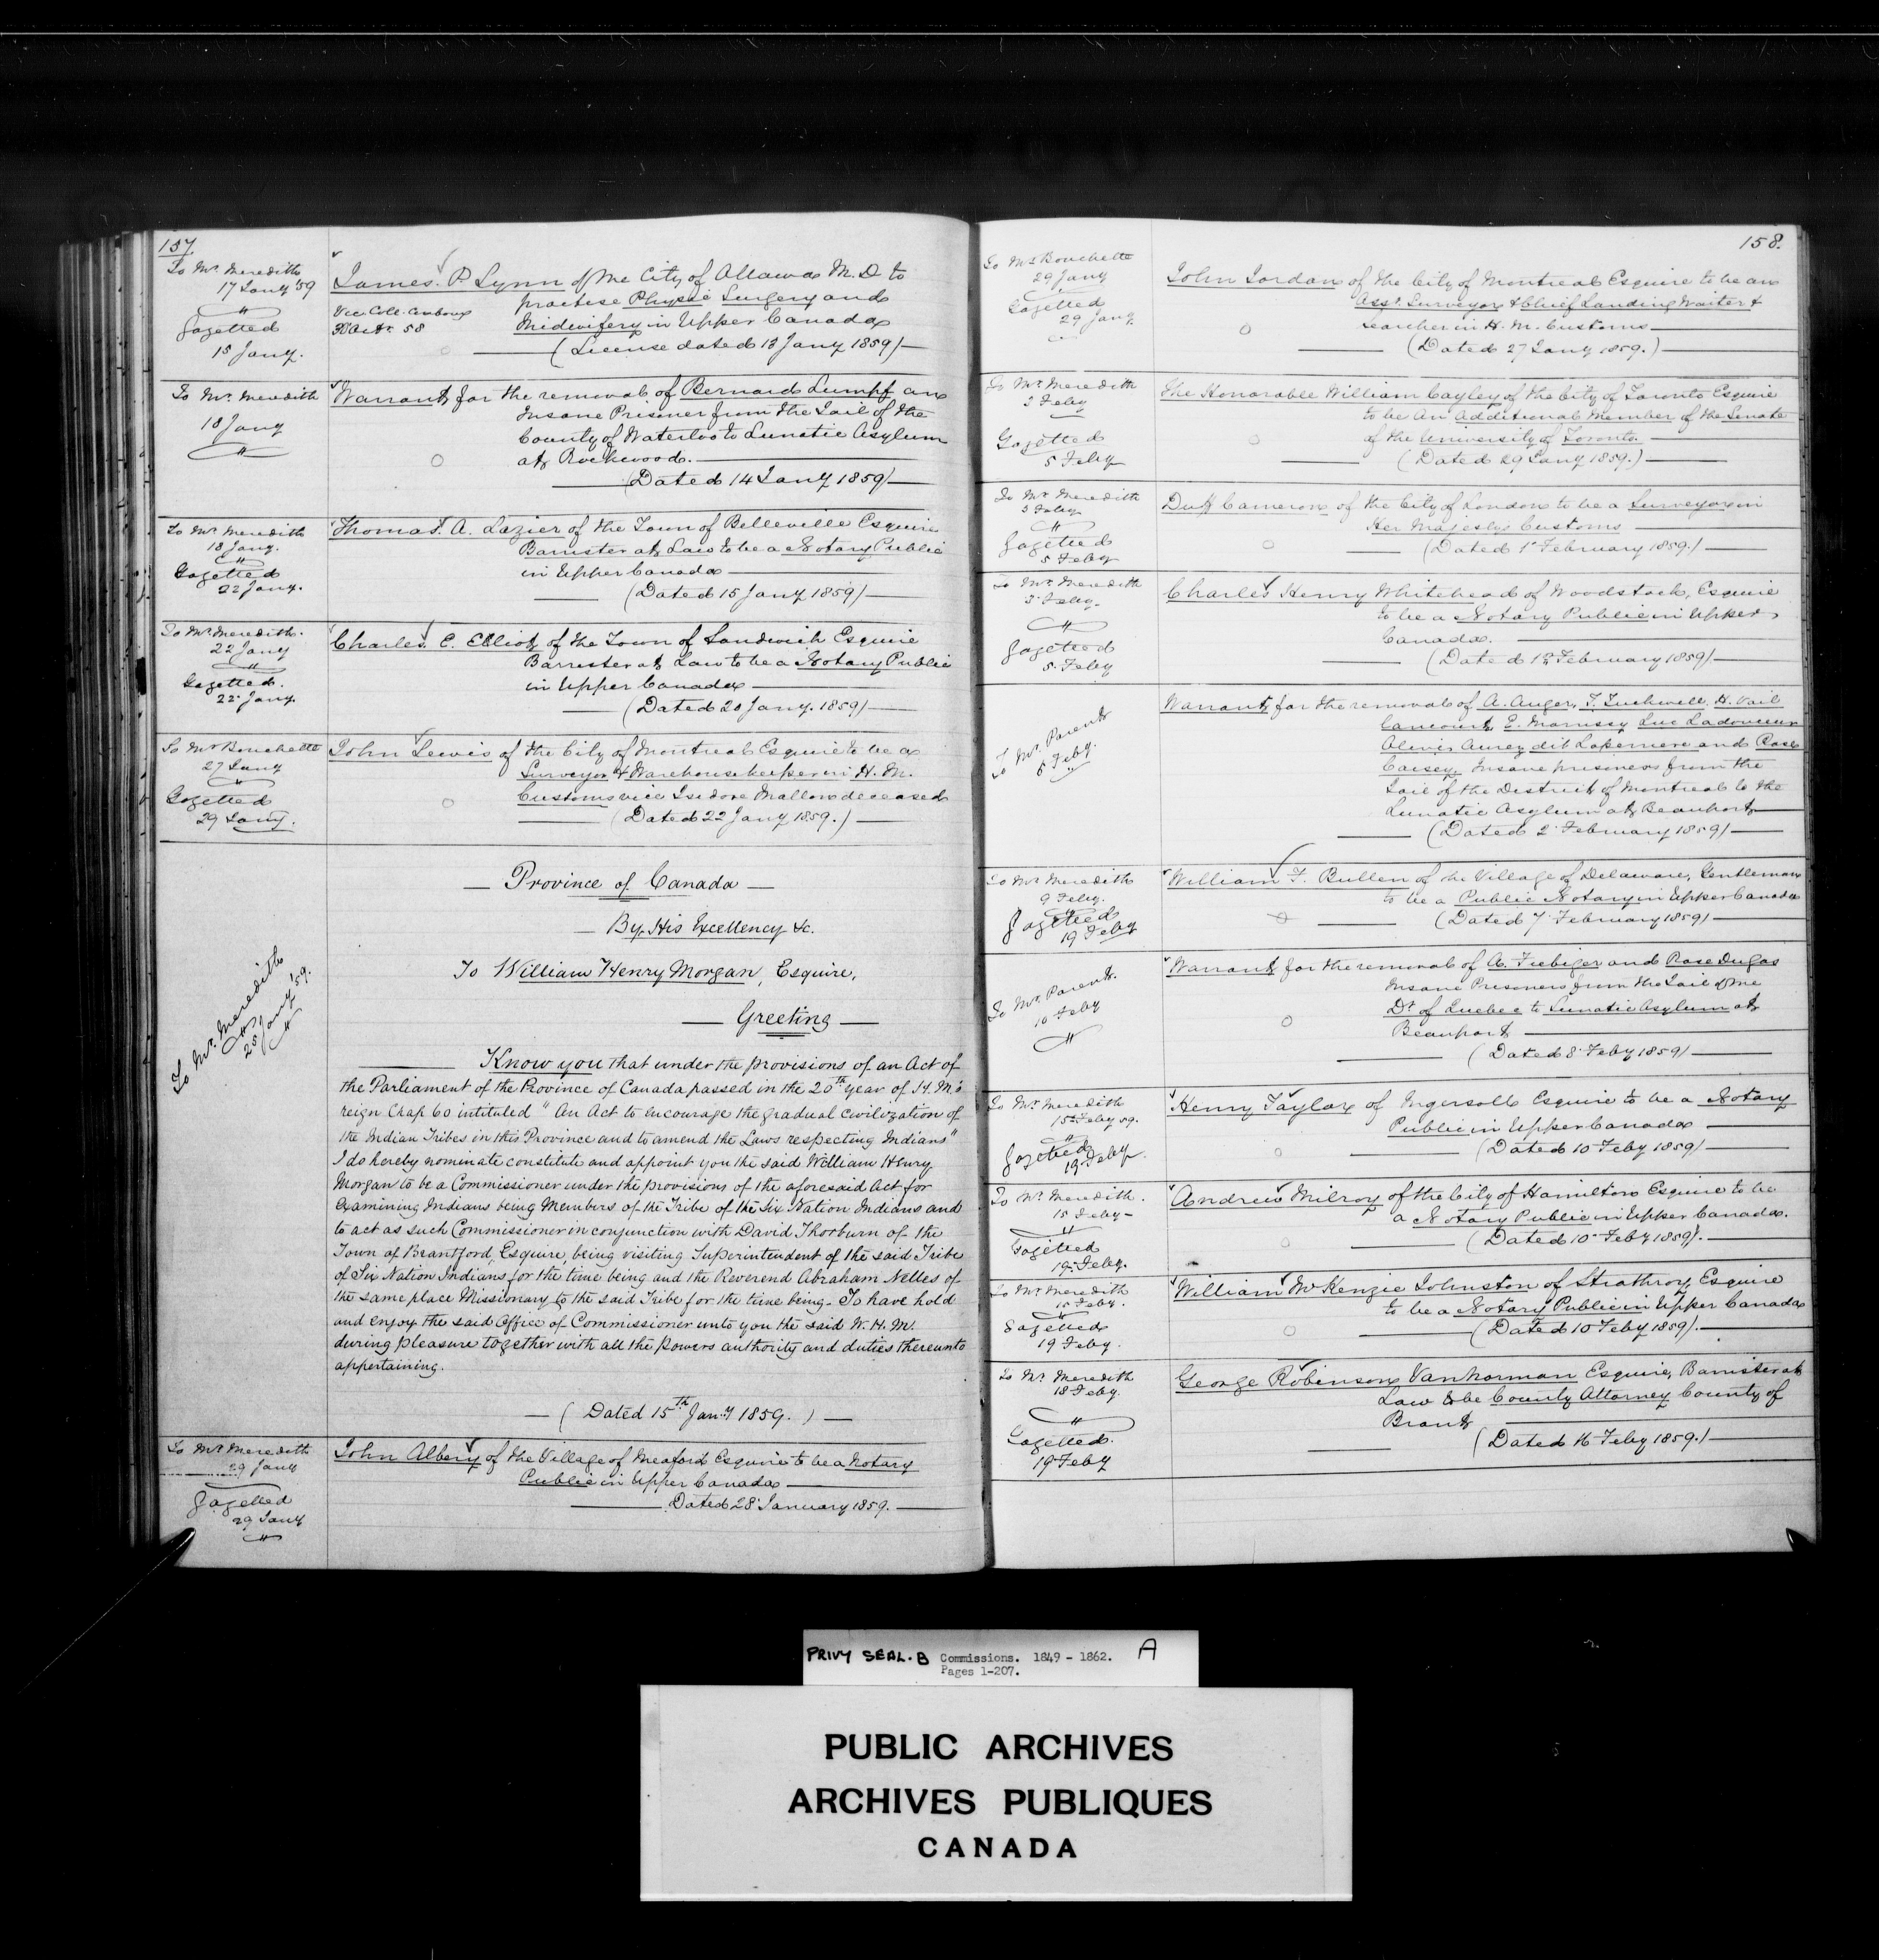 157.
To Mr. Meredith
17 Jany '59
Gazetted
15 Jany.
James. P. Lynn of the City of Ottawa M.D. to
practise Physic Surgery and
Vice Coll.
30 Octr. 58
Midwifery in Upper Canada
(License dated 13 Jany 1859)
To Mr. Meredith
18 Jany
Warrant for the removal of Bernard Lumpf an
Insane Prisoner from the Jail of the
County of Waterloo to Lunatic Asylum
at Rockwood.
(Dated 14 Jany 1859)
To Mr. Meredith
18 Jany.
Gazetted
22 Jany.
Thomas. A. Lazier of the Town of Belleville Esquire
Barrister at Law to be a Notary Public
in Upper Canada
(Dated 15 Jany 1859)
To Mr. Meredith.
22 Jany
Gazetted.
22 Jany.
Charles. E. Elliot of the Town of Sandwich Esquire
Barrister at Law to be a Notary Public
in Upper Canada
(Dated 20 Jany. 1859)
To Mr Bouchette
27 Jany
Gazetted
29 Jany.
John Lewis of the City of Montreal Esquire to be a
Surveyor & Warehousekeeper in H. M.
Customs vice Isidore Mallow deceased
(Dated 22 Jany 1859.)
Province of Canada
By His Excellency &c.
To William Henry Morgan, Esquire,
Greeting
To Mr. Meredith
25 Jany '59.
Know you that under the provisions of an Act of
the Parliament of the Province of Canada passed in the 20th year of H. M's
reign Chap 60 intituled "An Act to encourage the gradual civilization of
the Indian Tribes in this Province and to amend the Laws respecting Indians"
I do hereby nominate constitute and appoint you the said William Henry
Morgan to be a Commissioner under the provisions of the aforesaid Act for
Examining Indians being Members of the Tribe of the Six Nation Indians and
to act as such Commissioner in conjunction with David Thorburn of the
Town of Brantford, Esquire, being visiting Superintendent of the said Tribe
of Six Nation Indians for the time being and the Reverend Abraham Nelles of
the same place Missionary to the said Tribe for the time being. To have hold
and enjoy the said Office of Commissioner unto you the said W. H. M.
during pleasure together with all the powers authority and duties thereunto
appertaining.
(Dated 15th Jany 1859.)
To Mr Meredith
29 Jany
Gazetted
29 Jany
John Albery of the Village of Meaford Esquire to be a Notary
Public in Upper Canada
Dated 28 January 1859.
158.
To Mr Bouchette
29 Jany
Gazetted
29 Jany.
John Jordan of the City of Montreal Esquire to be an
Asst. Surveyor & Chief Landing Waiter &
Searcher in H. M. Customs
(Dated 27 Jany 1859.)
To Mr. Meredith
3 Feby
Gazetted
5 Feby
The Honorable William Cayley of the City of Toronto Esquire
to be An Additional Member of the Senate
of the University of Toronto
(Dated 29 Jany 1859.)
To Mr. Meredith
3 Feby
Gazetted
5 Feby
Duff Cameron of the City of London to be a Surveyor in
Her Majesty's Customs
(Dated 1st February 1859.)
To Mr. Meredith
3 Feby.
Gazetted
5 Feby
Charles Henry Whitehead of Woodstock, Esquire
to be a Notary Public in Upper
Canada.
(Dated 1st February 1859)
To Mr. Parent
6 Feby.
Warrant for the removal of A. Auger, F. Tuchwell, H. Vail
E. Morrissy Luc Ladouceur
Alexis dit and Rose
Carsey, Insane prisoners from the
Jail of the District of Montreal to the
Lunatic Asylum at Beauport
(Dated 2 February 1859)
To Mr Meredith
9 Feby.
Gazetted
19 Feby
William F. Bullen of the Village of Delaware, Gentleman
to be a Public Notary in Upper Canada
(Dated 7 February 1859)
To Mr. Parent.
10 Feby
Warrant for the removal of A. Fiebiger and Rose Dugas
Insane Prisoners from the Jail of the
Dt. of Quebec to Lunatic Asylum at
Beauport
(Dated 8 Feby 1859)
To Mr. Meredith
15 Feby 59.
Gazetted
19 Feby.
Henry Taylor of Ingersoll Esquire to be a Notary
Public in Upper Canada
(Dated 10 Feby 1859)
To Mr. Meredith.
15 Feby
Gazetted
19 Feby.
Andrew Milroy of the City of Hamilton Esquire to be
a Notary Public in Upper Canada.
(Dated 10 Feby 1859).
To Mr. Meredith
15 Feby.
Gazetted
19 Feby.
William McKenzie Johnston of Strathroy, Esquire
to be a Notary Public in Upper Canada
(Dated 10 Feby 1859).
To Mr. Meredith
18 Feby.
Gazetted.
19 Feby
George Robinson Vannorman Esquire, Barrister at
Law to be County Attorney County of
Brant
(Dated 16 Feby 1859.)
PRIVY SEAL. B Commissions. 1849 - 1862. A
Pages 1-207.
PUBLIC ARCHIVES
ARCHIVES PUBLIQUES
CANADA